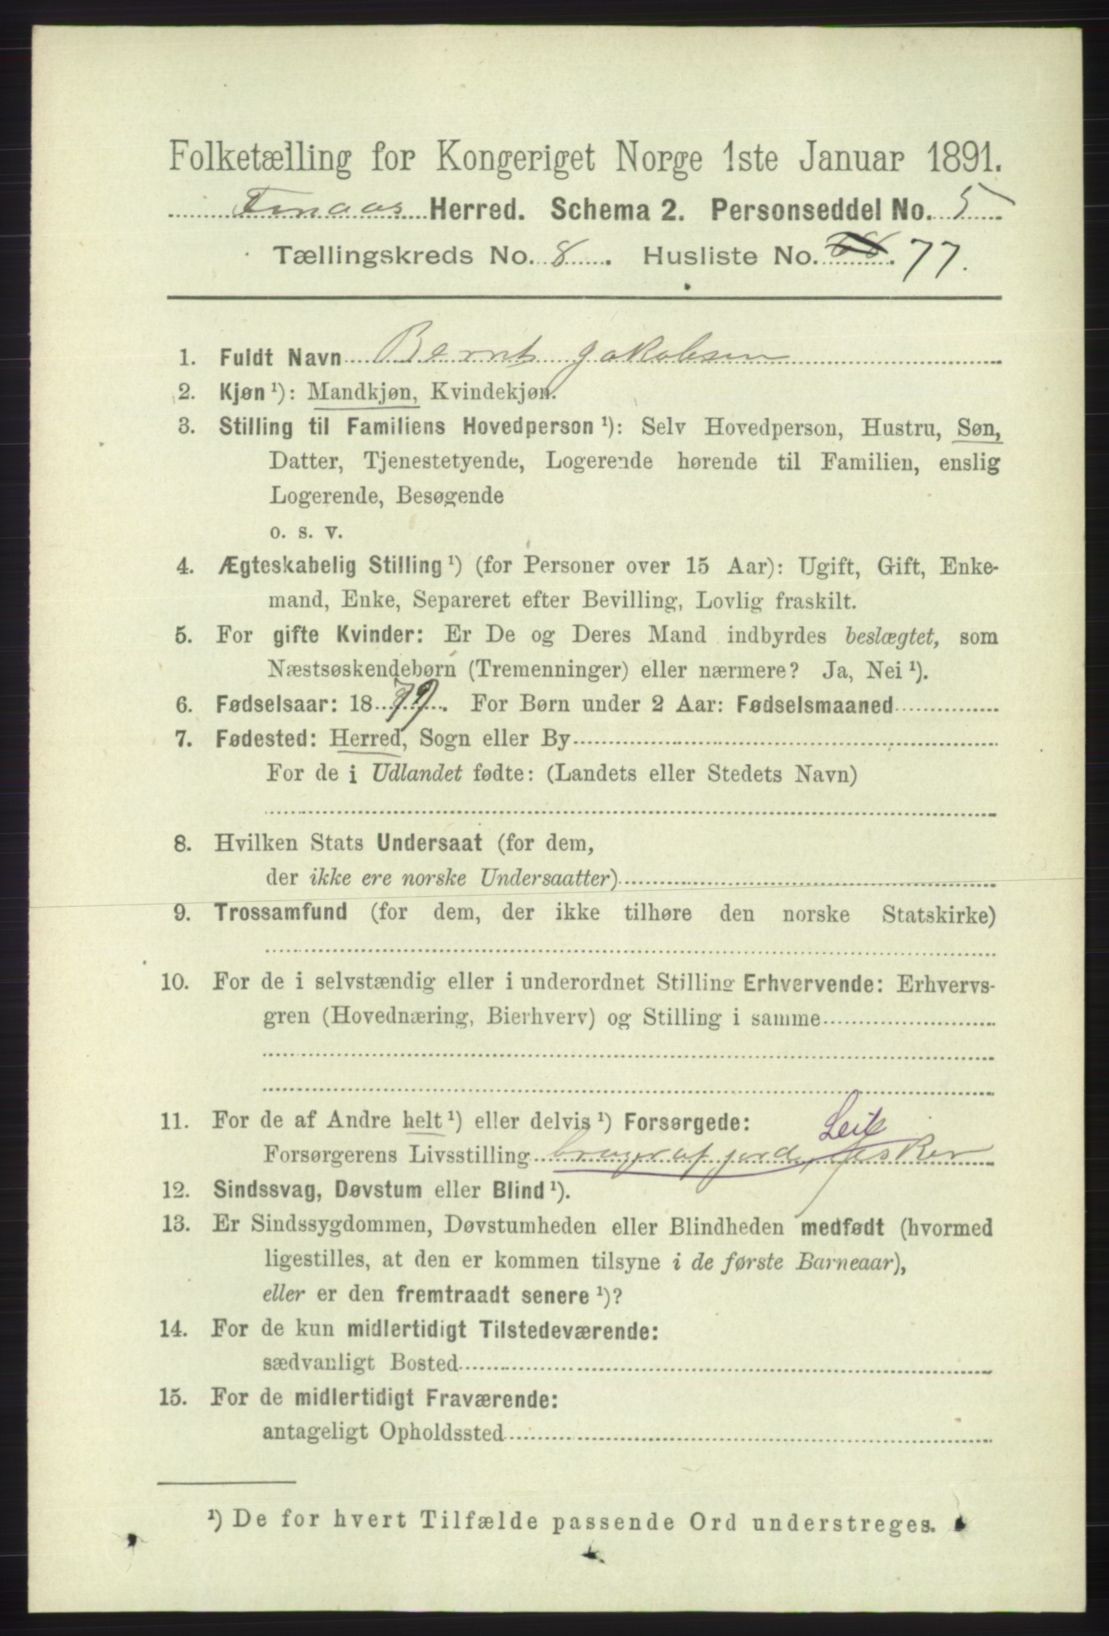 Folketælling for Kongeriget Norge 1ste Januar 1891.
Finaas Herred. Schema 2. Personseddel No. 5
Tællingskreds No. 8. Husliste No. 77.
1. Fuldt Navn Bernt Jakobsen
2. Kjøn ¹): Mandkjøn, Kvindekjøn.
3. Stilling til Familiens Hovedperson ¹): Selv Hovedperson, Hustru, Søn,
Datter, Tjenestetyende, Logerende hørende til Familien, enslig
Logerende, Besøgende
o. s. v.
4. Ægteskabelig Stilling ¹) (for Personer over 15 Aar): Ugift, Gift, Enke-
mand, Enke, Separeret efter Bevilling, Lovlig fraskilt.
5. For gifte Kvinder: Er De og Deres Mand indbyrdes beslægtet, som
Næstsøskendebørn (Tremenninger) eller nærmere? Ja, Nei ¹).
6. Fødselsaar: 1879. For Børn under 2 Aar: Fødselsmaaned
7. Fødested: Herred, Sogn eller By
For de i Udlandet fødte: (Landets eller Stedets Navn)
8. Hvilken Stats Undersaat (for dem,
der ikke ere norske Undersaatter)
9. Trossamfund (for dem, der ikke tilhøre den norske Statskirke)
10. For de i selvstændig eller i underordnet Stilling Erhvervende: Erhvervs-
gren (Hovednæring, Bierhverv) og Stilling i samme
11. For de af Andre helt ¹) eller delvis ¹) Forsørgede:
Leil
Forsørgerens Livsstilling bruger af jord, fisker
12. Sindssvag, Døvstum eller Blind ¹).
13. Er Sindssygdommen, Døvstumheden eller Blindheden medfødt (hvormed
ligestilles, at den er kommen tilsyne i de første Barneaar),
eller er den fremtraadt senere ¹)?
14. For de kun midlertidigt Tilstedeværende:
sædvanligt Bosted
15. For de midlertidigt Fraværende:
antageligt Opholdssted
¹) De for hvert Tilfælde passende Ord understreges.